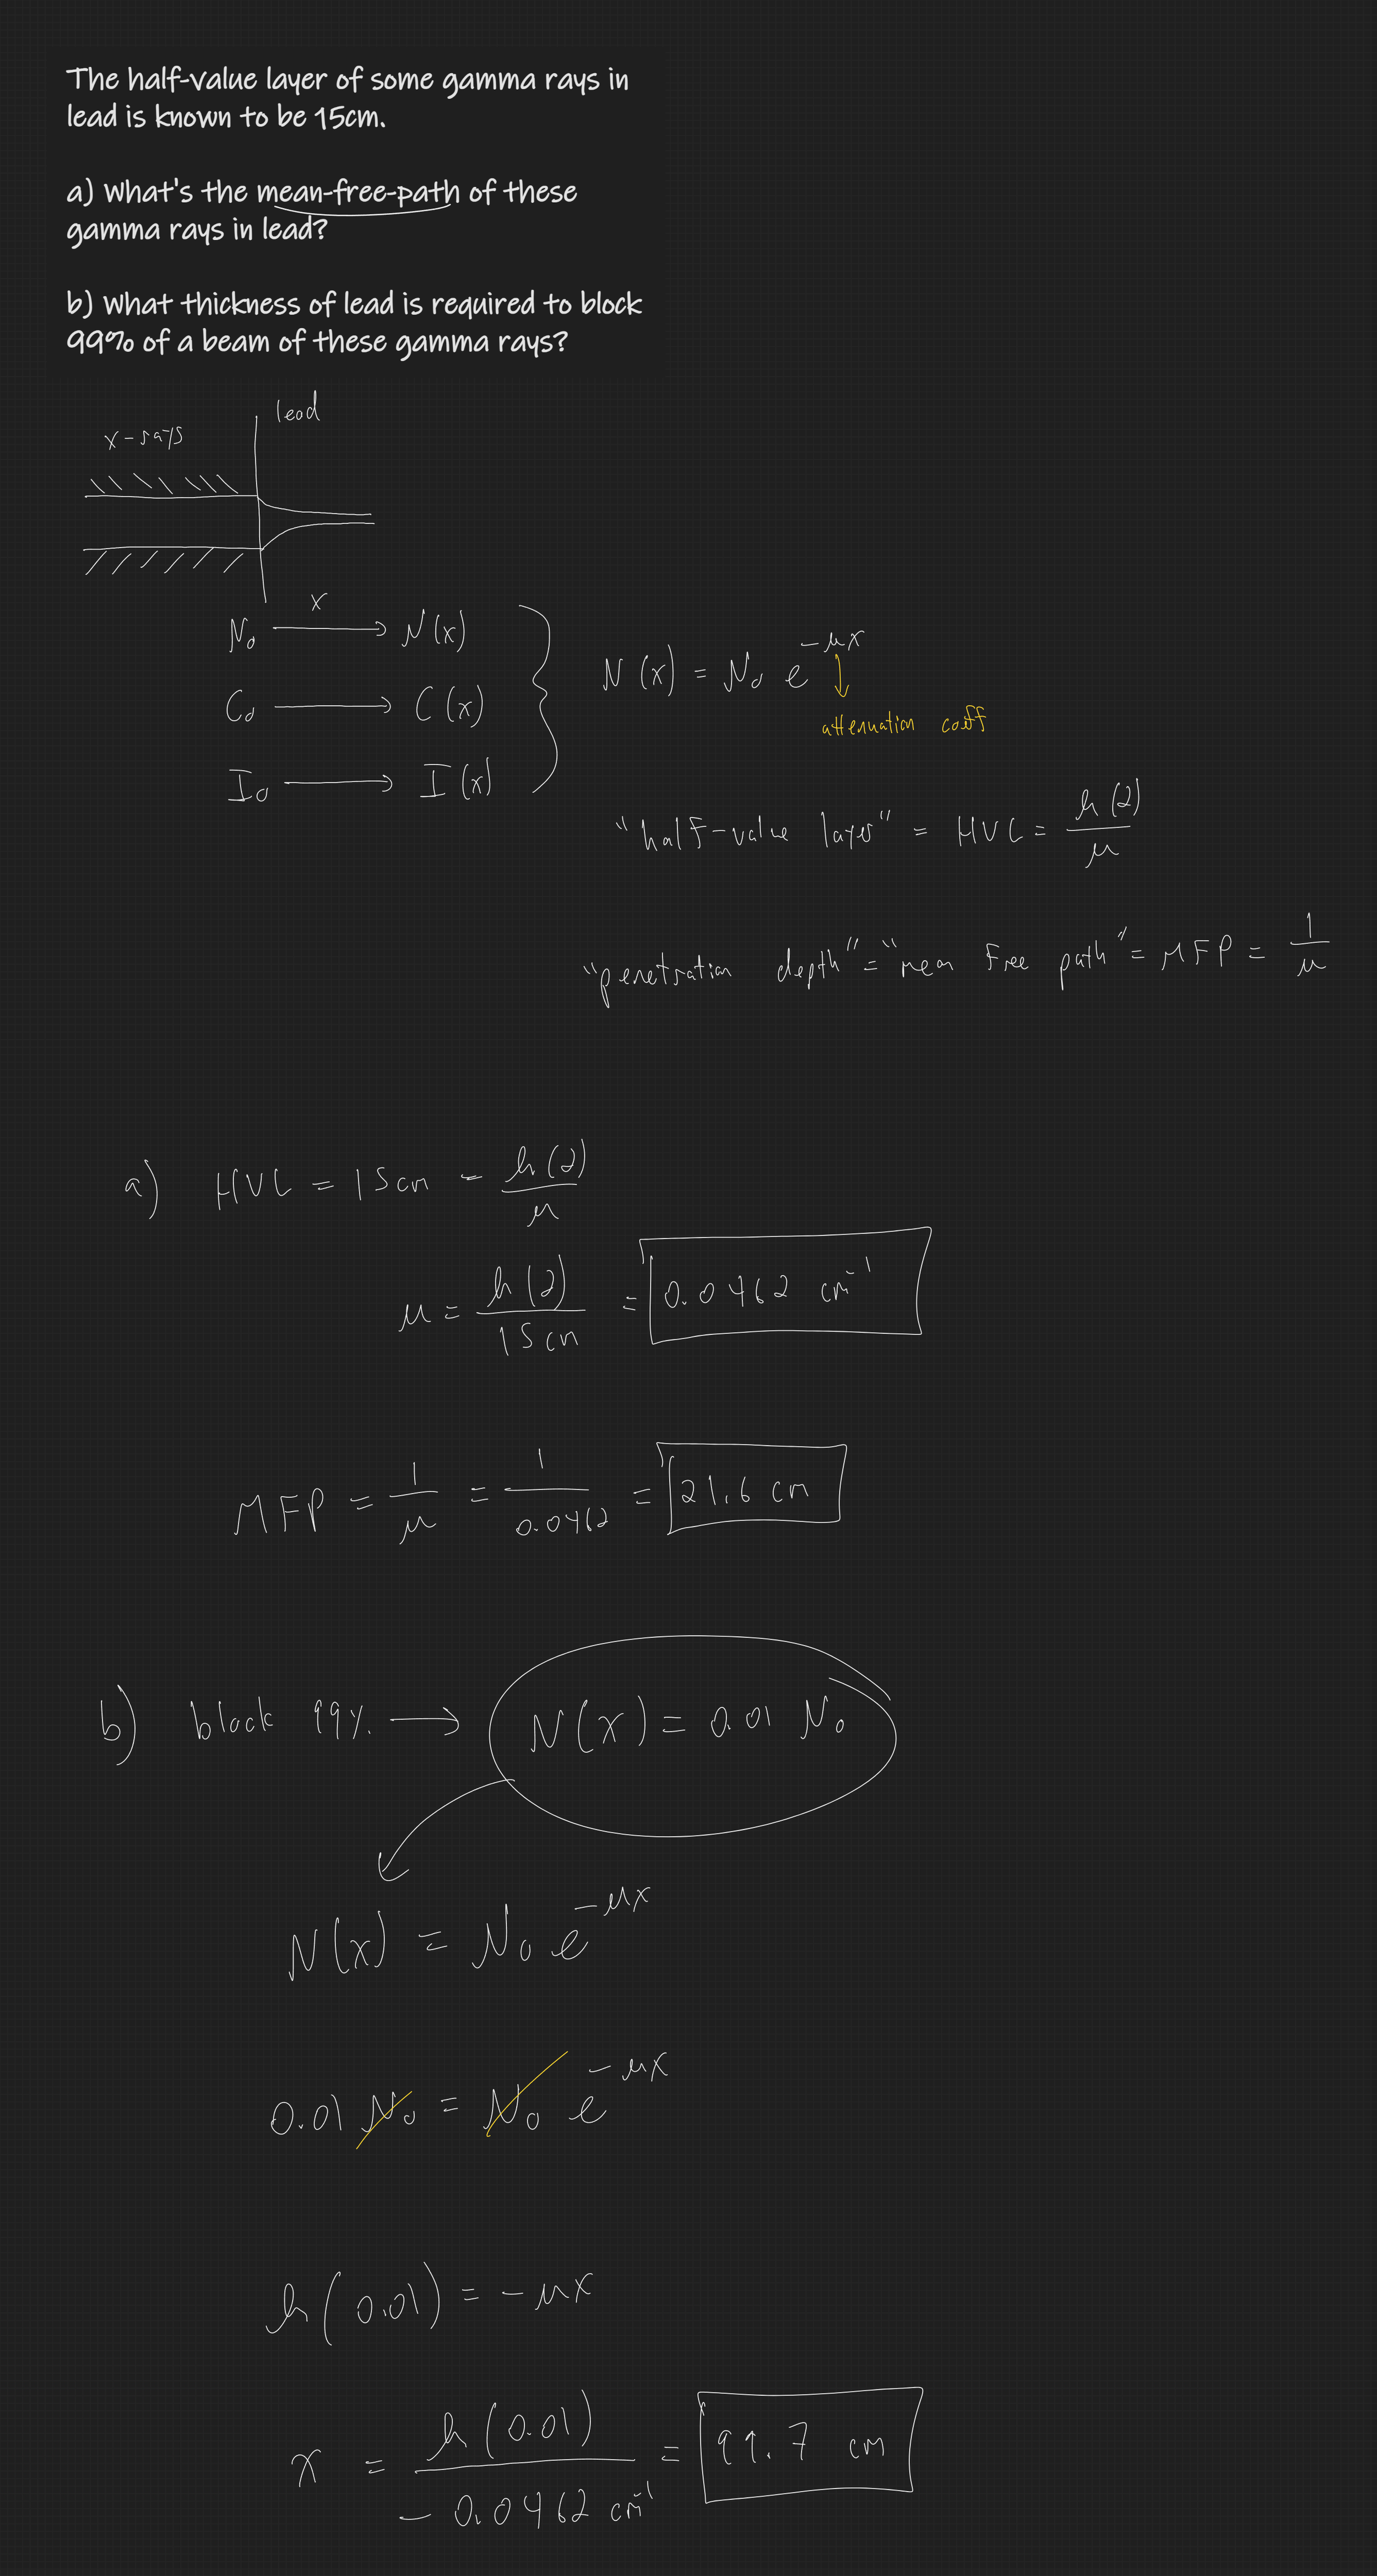 The half-value layer of some gamma rays in
lead is known to be 15cm.
a) What's the mean-free-path of these
gamma rays in lead?
b) What thickness of lead is required to block
99% of a beam of these gamma rays?
lead
x-rays
N₀ —x→ N(x)
C₀ → C(x)
I₀ → I(x)
N(x) = N₀ e^(-μx)
attenuation coeff
"half-value layer" = HVL = ln(2)/μ
"penetration depth" = "mean free path" = MFP = 1/μ
a) HVL = 15cm = ln(2)/μ
μ = ln(2)/15cm = 0.0462 cm⁻¹
MFP = 1/μ = 1/0.0462 = 21.6 cm
b) block 99% → N(x) = 0.01 N₀
N(x) = N₀ e^(-μx)
0.01 N₀ = N₀ e^(-μx)
ln(0.01) = -μx
x = ln(0.01)/(-0.0462 cm⁻¹) = 99.7 cm